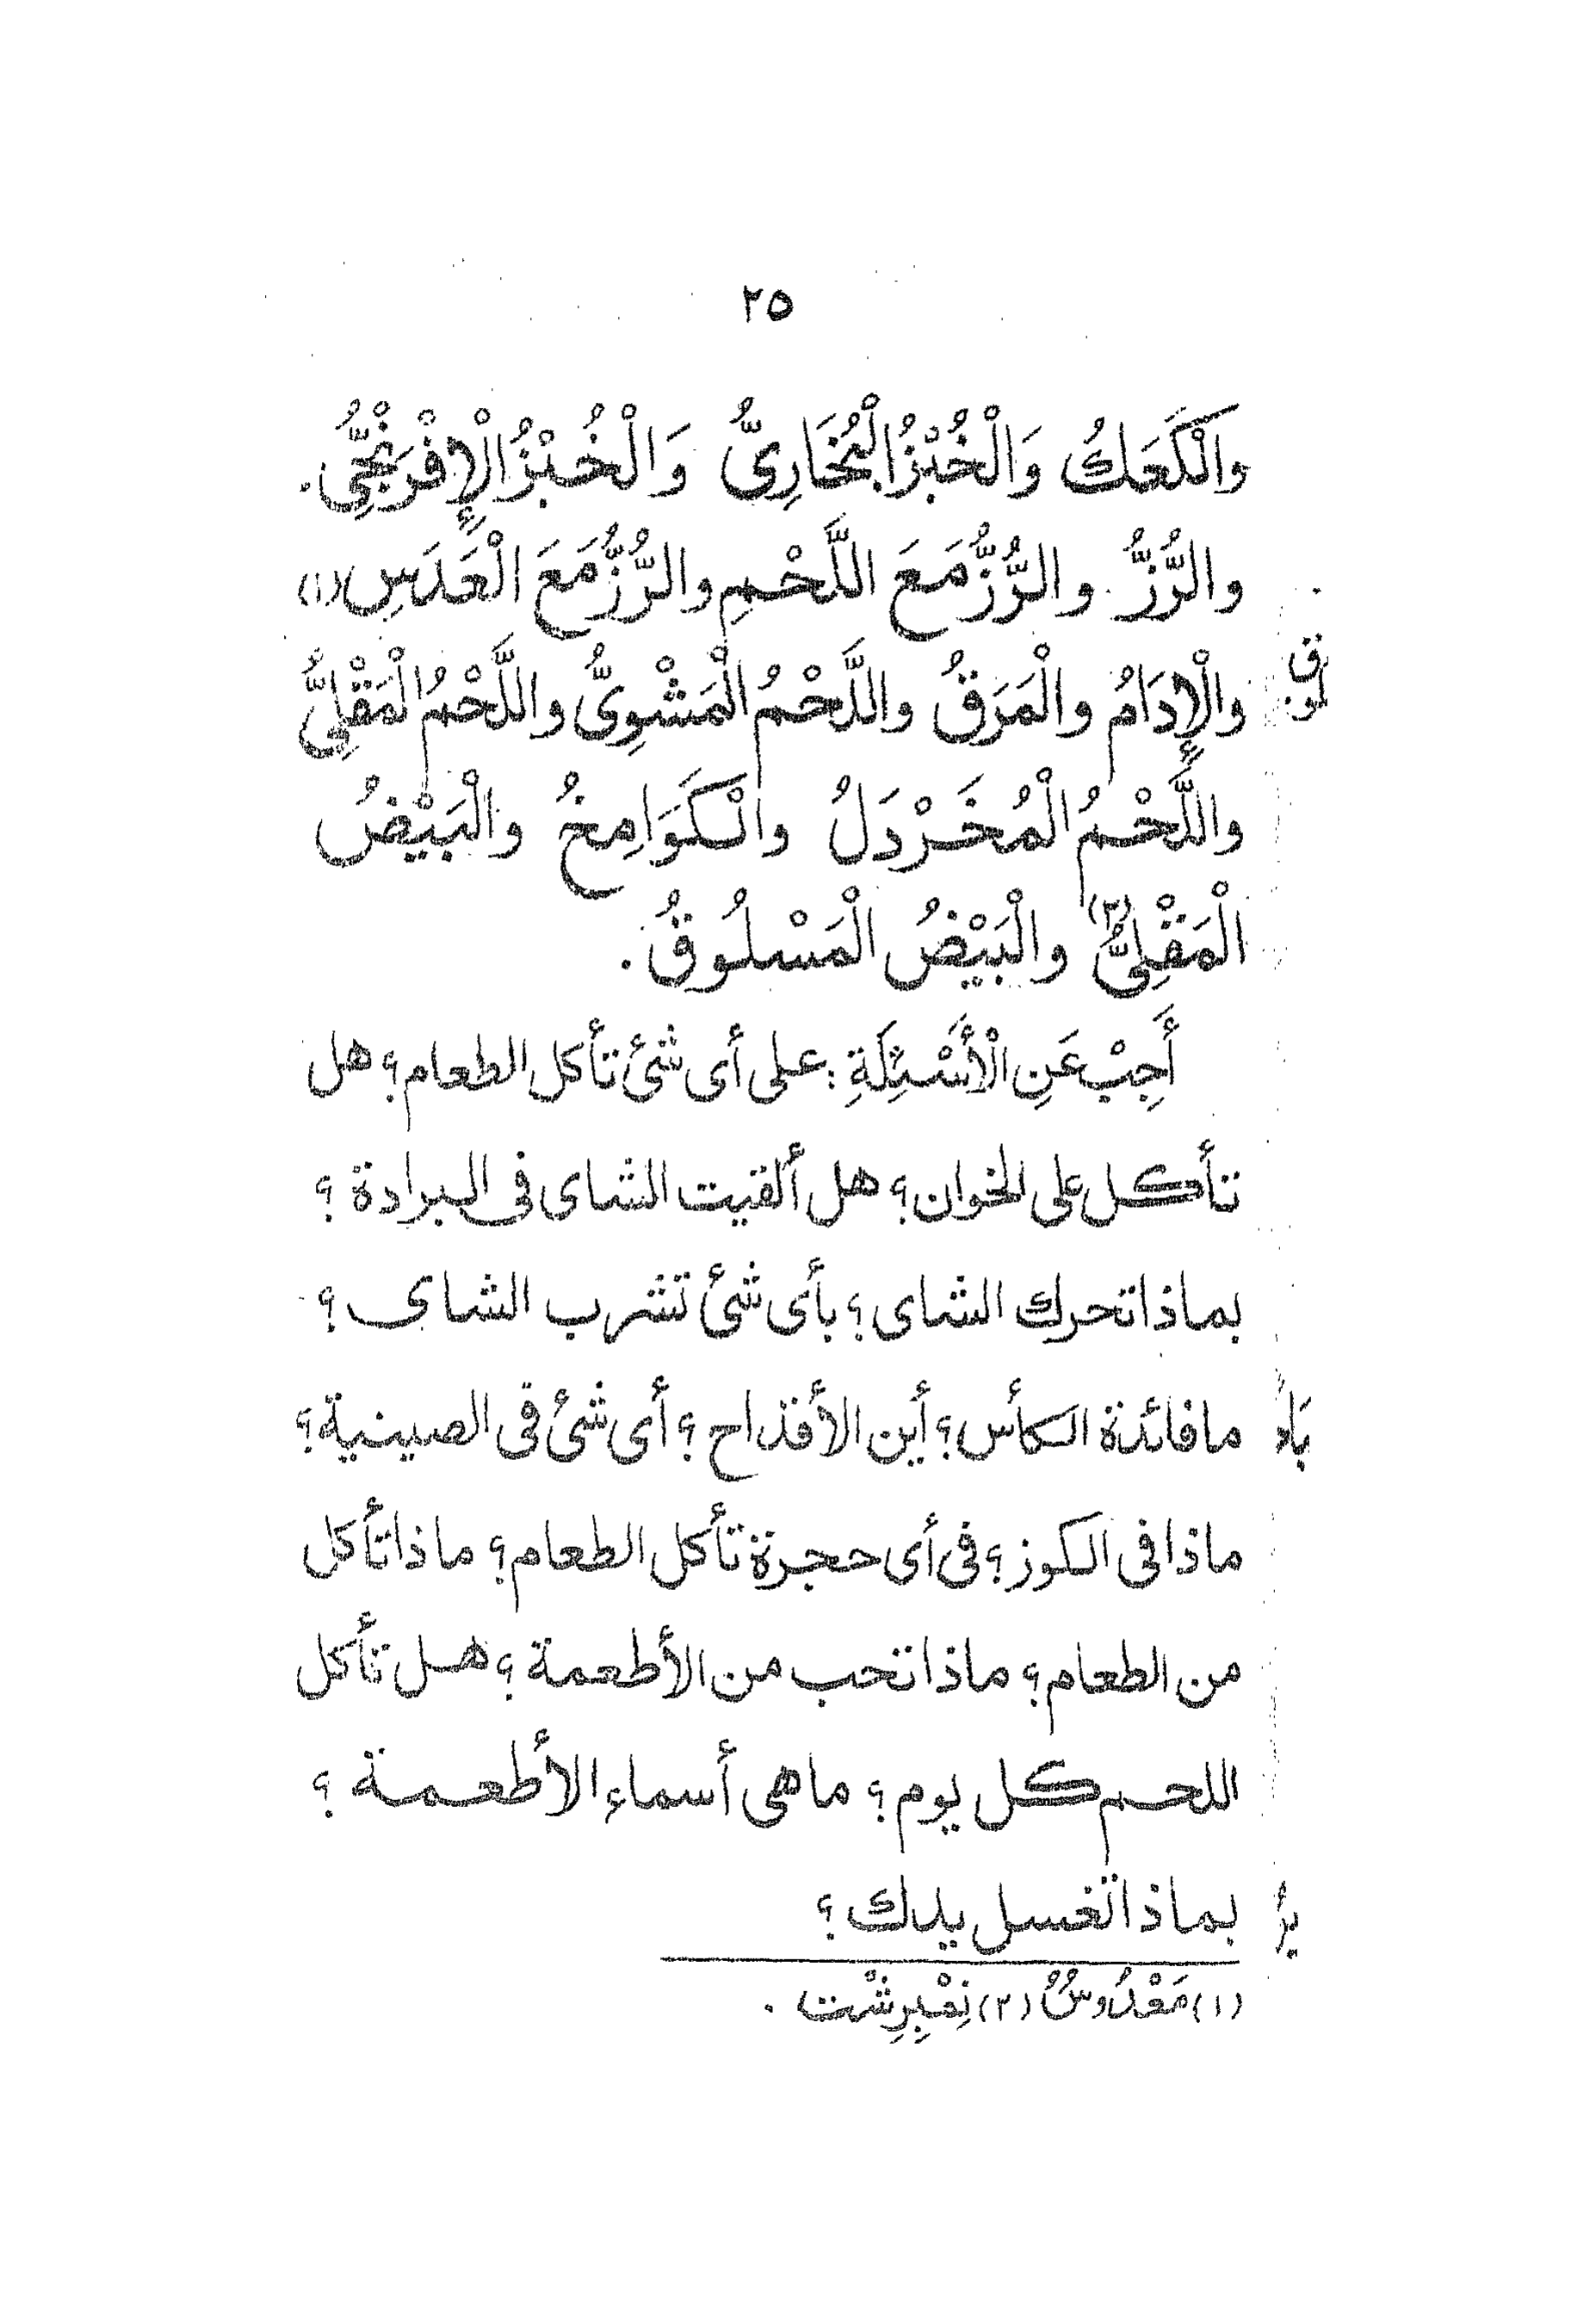 ٢٥
والْكَعَكُ وَالْخُبْزُ الْبُخَارِىُّ وَالْخُبْزُ الْإِفْرَنْجِىُّ.
والرُّزُّ والرُّزُّ مَعَ اللَّحْمِ والرُّزُّ مَعَ الْعَدَسِ (١)
والْإِدَامُ والْمَرَقُ واللَّحْمُ الْمَشْوِىُّ واللَّحْمُ الْمَقْلِىُّ
واللَّحْمُ الْمُخَرْدَلُ والْكَوَامِخُ والْبَيْضُ
الْمَقْلِىُّ (٢) والْبَيْضُ الْمَسْلُوقُ.
أَجِبْ عَنِ الْأَسْئِلَةِ: على أى شئ تأكل الطعام؟ هل
تأكل على الخوان؟ هل ألقيت الشاى فى البرادة؟
بماذا تحرك الشاى؟ بأى شئ تشرب الشاى؟
ما فائدة الكأس؟ أين الأقداح؟ أى شئ فى الصينية؟
ماذا فى الكوز؟ فى أى حجرة تأكل الطعام؟ ماذا تأكل
من الطعام؟ ماذا تحب من الأطعمة؟ هل تأكل
اللحم كل يوم؟ ما هى أسماء الأطعمة؟
بماذا تغسل يدك؟
(١) مَعْدُوسٌ (٢) نِعْبِرِشْت.